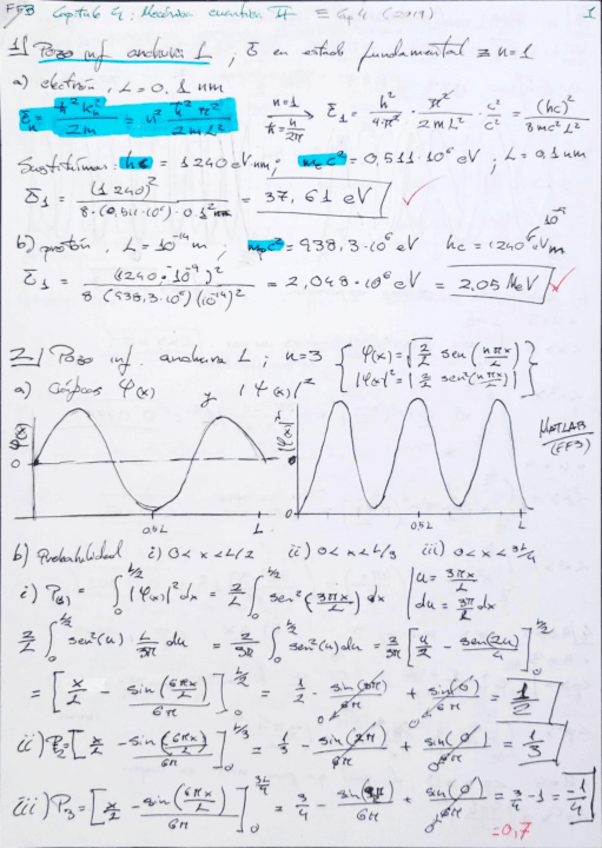 FF3 Capítulo 4: Mecánica cuántica II ≡ Cap 4 (2019) 1
1] Pozo inf. anchura L ; ē en estado fundamental ≡ n=1
a) electrón, L=0.1 nm
E_n = ħ² k_n² / 2m = n² ħ² π² / 2mL² n=1 ħ = h/2π → E_1 = h²/4π² · π²/2mL² · c²/c² = (hc)²/8mc²L²
Sustituimos: hc = 1240 eV·nm; m_e c² = 0,511·10⁶ eV ; L = 0,1 nm
E_1 = (1240)² / 8·(0,511·10⁶)·0.1² = 37,61 eV ✓
b) protón, L = 10⁻¹⁴ m, m_p c² = 938,3·10⁶ eV hc = 1240 eV m 10⁻⁹
E_1 = (1240·10⁻⁹)² / 8·(938,3·10⁶)(10⁻¹⁴)² = 2,048·10⁶ eV = 2.05 MeV ✓
2] Pozo inf. anchura L ; n=3 { φ(x) = √(2/L) sen (nπx/L)
|φ(x)|² = | 2/L sen²(nπx/L) | }
a) Gráficas Ψ(x) y |Ψ(x)|²
φ(x) 0 0.5L L
|φ(x)|² 0 0.5L L
MATLAB (FF3)
b) Probabilidad i) 0<x<L/2 ii) 0<x<L/3 iii) 0<x<3L/4
i) P = ∫₀^{L/2} |φ(x)|² dx = 2/L ∫₀^{L/2} sen² (3πx/L) dx | u = 3πx/L
du = 3π/L dx
2/L ∫₀^{L/2} sen²(u) L/3π du = 2/3π ∫₀^{L/2} sen²(u) du = 2/3π [ u/2 - sen(2u)/4 ]₀^{L/2}
= [ x/L - sin(6πx/L)/6π ]₀^{L/2} = 1/2 - sin(3π)/6π + sin(0)/6π = 1/2
ii) P₂ = [ x/L - sin(6πx/L)/6π ]₀^{L/3} = 1/3 - sin(2π)/6π + sin(0)/6π = 1/3
iii) P₃ = [ x/L - sin(6πx/L)/6π ]₀^{3L/4} = 3/4 - sin()/6π + sin(0)/6π = 3/4 - 1 = -1/4
=0,7